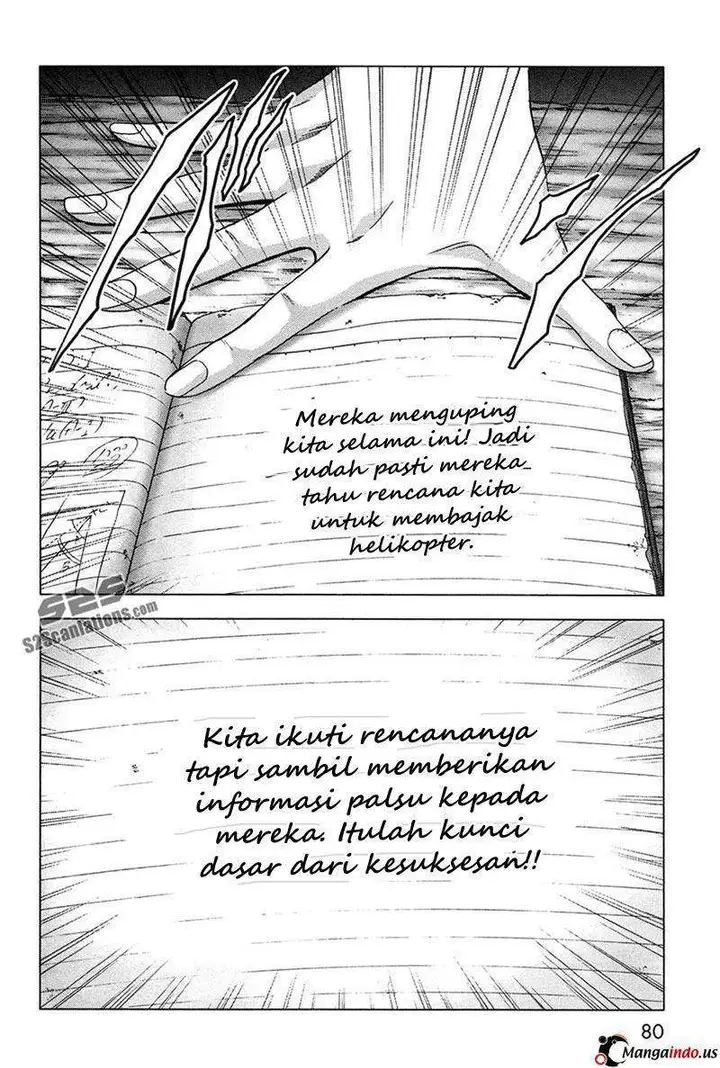 Mereka menguping
kita selama ini! Jadi
sudah pasti mereka
tahu rencana kita
untuk membajak
helikopter.
S2S
S2Scanlations.com
Kita ikuti rencananya
tapi sambil memberikan
informasi palsu kepada
mereka. Itulah kunci
dasar dari kesuksesan!!
80
Mangaindo.us